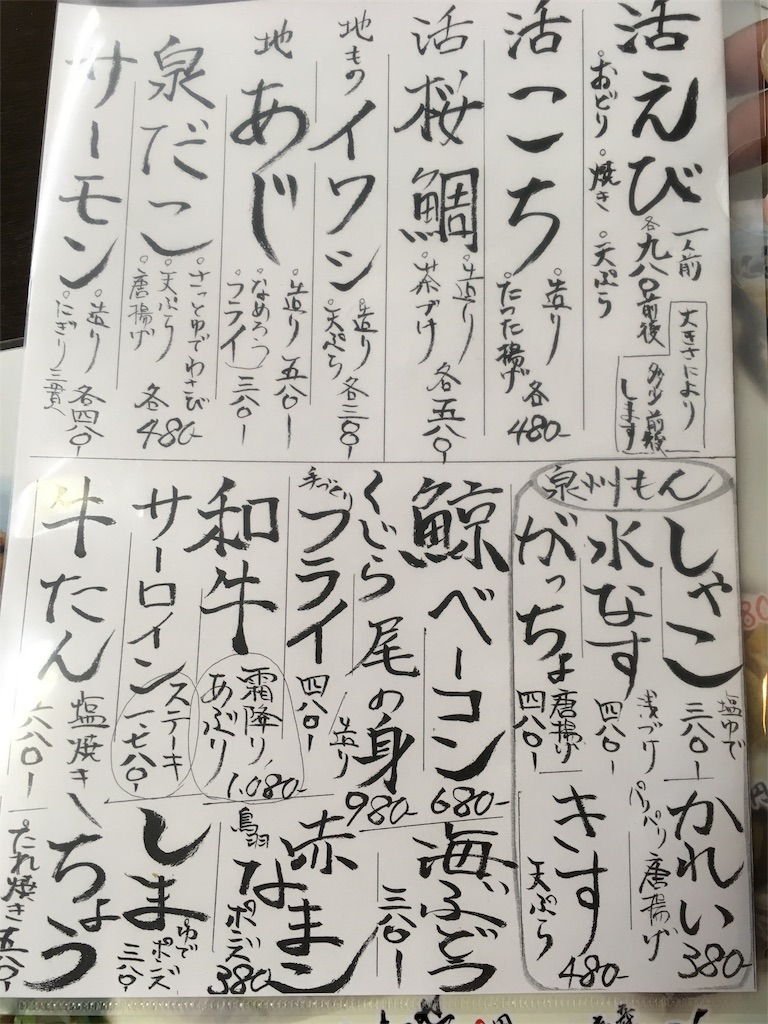 活えび
一人前
各九八〇前後
大きさにより
多少前後
します
。おどり。焼き。天ぷら
活こち
。造り
。たった揚げ
各480-
活桜鯛
。造り
。茶づけ
各五八〇-
地ものイワシ
。造り
。天ぷら
各三八〇-
地あじ
。造り 五八〇-
。なめろう
。フライ
三八〇-
泉だこ
。さっとゆでわさび
。天ぷら
。唐揚げ
各480-
サーモン
。造り
。にぎり三貫
各四八〇-
泉州もん
しゃこ
塩ゆで
三八〇-
水なす
浅づけ
四八〇-
がっちょ
唐揚げ
四八〇-
かれい
パリパリ唐揚げ
380-
きす
天ぷら
480-
鯨ベーコン
680-
くじら尾の身
造り
980-
手づくりフライ
四八〇-
和牛
霜降り
あぶり
1,080-
サーロイン
ステーキ
一、七八〇-
牛たん
塩焼き
六八〇-
海ぶどう
三八〇-
赤なまこ
鳥羽
ポン酢
380-
しま
ちょう
ゆで
ポンズ
三八〇-
たれ焼き
五八〇-